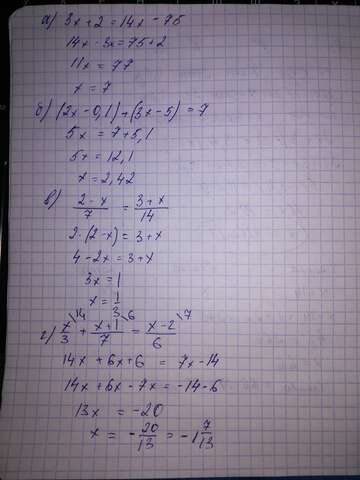 а) 3x + 2 = 14x - 75
14x - 3x = 75 + 2
11x = 77
x = 7
б) (2x - 0,1) + (3x - 5) = 7
5x = 7 + 5,1
5x = 12,1
x = 2,42
в) \frac{2 - x}{7} = \frac{3 + x}{14}
2·(2 - x) = 3 + x
4 - 2x = 3 + x
3x = 1
x = \frac{1}{3}
г) \frac{x}{3}^{\14} + \frac{x + 1}{7}^{\6} = \frac{x - 2}{6}^{\7}
14x + 6x + 6 = 7x - 14
14x + 6x - 7x = -14 - 6
13x = -20
x = -\frac{20}{13} = -1\frac{7}{13}